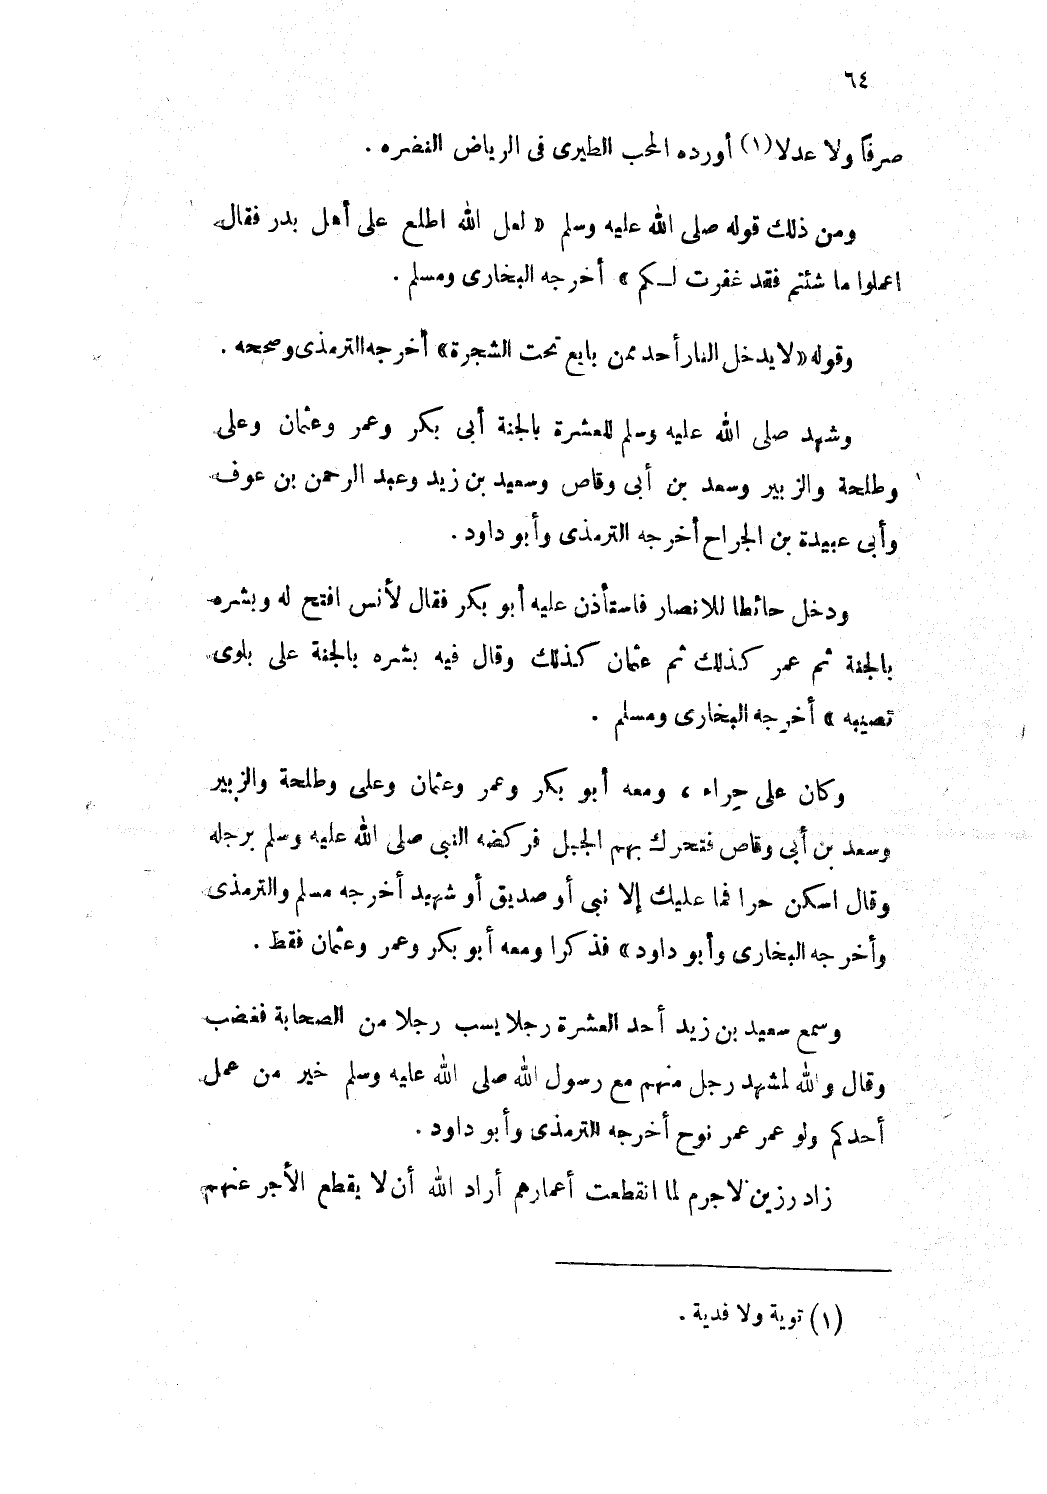 ٦٤
صرفاً ولا عدلا (١) أورده المحب الطبرى فى الرياض النضره .
ومن ذلك قوله صلى الله عليه وسلم « لعل الله اطلع على أهل بدر فقال
اعملوا ما شئتم فقد غفرت لكم » أخرجه البخارى ومسلم .
وقوله « لا يدخل النار أحد ممن بايع تحت الشجرة » أخرجه الترمذى وصححه .
وشهد صلى الله عليه وسلم للعشرة بالجنة أبى بكر وعمر وعثمان وعلى
وطلحة والزبير وسعد بن أبى وقاص وسعيد بن زيد وعبد الرحمن بن عوف
وأبى عبيدة بن الجراح أخرجه الترمذى وأبو داود .
ودخل حائطا للانصار فاستأذن عليه أبو بكر فقال لأنس افتح له وبشره
بالجنة ثم عمر كذلك ثم عثمان كذلك وقال فيه بشره بالجنة على بلوى
تصيبه » أخرجه البخارى ومسلم .
وكان على حِراء ، ومعه أبو بكر وعمر وعثمان وعلى وطلحة والزبير
وسعد بن أبى وقاص فتحرك بهم الجبل فركضه النبى صلى الله عليه وسلم برجله
وقال اسكن حرا فما عليك إلا نبى أو صديق أو شهيد أخرجه مسلم والترمذى
وأخرجه البخارى وأبو داود » فذكرا ومعه أبو بكر وعمر وعثمان فقط .
وسمع سعيد بن زيد أحد العشرة رجلا يسب رجلا من الصحابة فغضب
وقال والله لمشهد رجل منهم مع رسول الله صلى الله عليه وسلم خير من عمل
أحدكم ولو عمر عمر نوح أخرجه الترمذى وأبو داود .
زاد رزين لاجرم لما انقطعت أعمارهم أراد الله أن لا يقطع الأجر عنهم
(١) توبة ولا فدية .